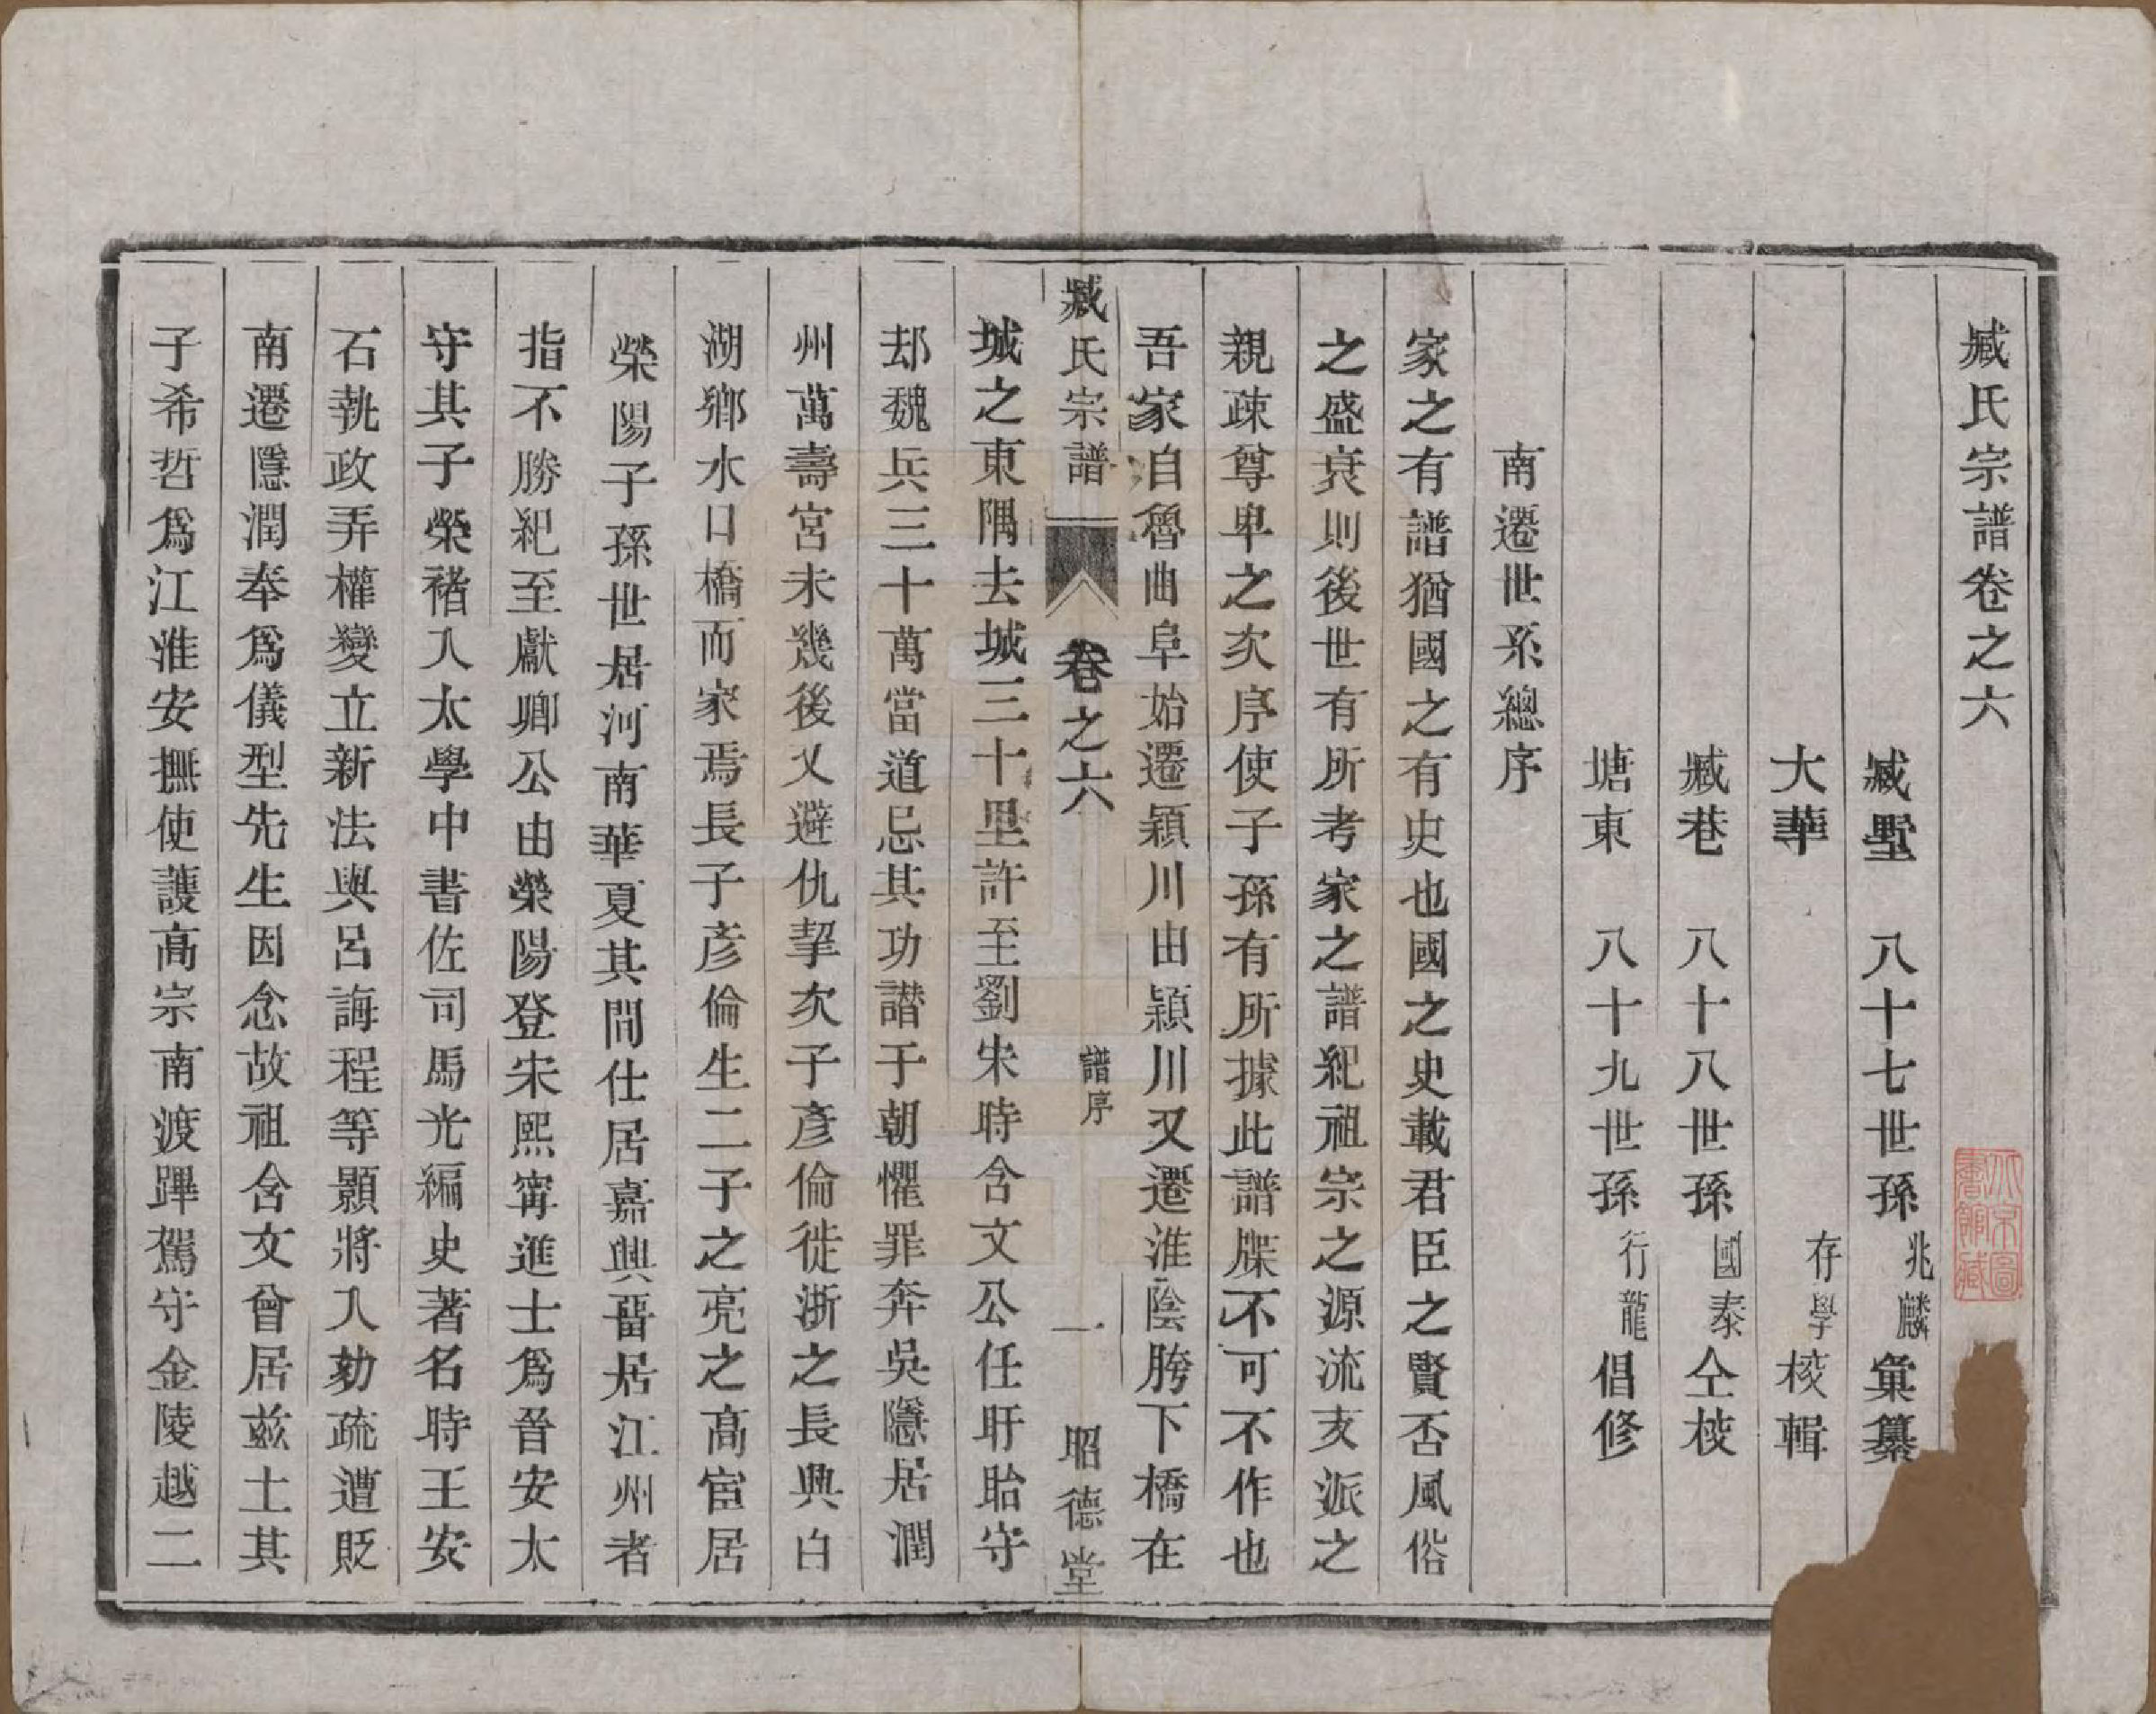 臧氏宗譜卷之六
臧墅 八十七世孫兆麟彙纂
大華 存學校輯
臧巷 八十八世孫國泰仝校
塘東 八十九世孫行龍倡修
南遷世系總序
家之有譜猶國之有史也國之史載君臣之賢否風俗
之盛衰則後世有所考家之譜紀祖宗之源流支派之
親疎尊卑之次序使子孫有所據此譜牒不可不作也
吾家自魯曲阜始遷潁川由潁川又遷淮陰胯下橋在
臧氏宗譜 卷之六 譜序 一 昭德堂
城之東隅去城三十里許至劉宋時含文公任盱眙守
却魏兵三十萬當道忌其功譖于朝懼罪奔吳隱居潤
州萬壽宮未幾後又避仇挈次子彥倫徙浙之長興白
湖鄉水口橋而家焉長子彥倫生二子之亮之高宦居
榮陽子孫世居河南華夏其間仕居嘉興畱居江州者
指不勝紀至獻卿公由榮陽登宋熙甯進士爲晉安太
守其子榮禇入太學中書佐司馬光編史著名時王安
石執政弄權變立新法與呂誨程等顥將入劾疏遭貶
南遷隱潤奉爲儀型先生因念故祖含文曾居兹土其
子希哲爲江淮安撫使護高宗南渡蹕駕守金陵越二